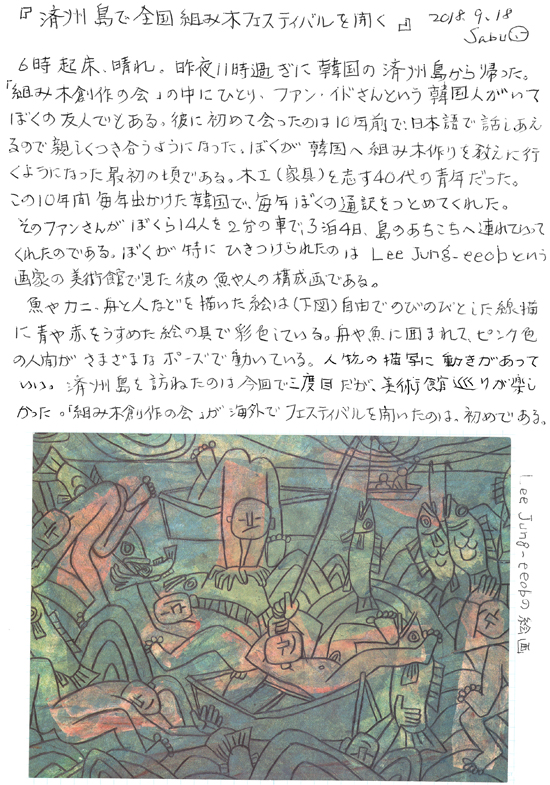 『済州島で全国組み木フェスティバルを開く』 2018.9.18
Sabu
6時起床、晴れ。昨夜11時過ぎに韓国の済州島から帰った。
「組み木創作の会」の中にひとり、ファン・イドさんという韓国人がいて
ぼくの友人でもある。彼に初めて会ったのは10年前で、日本語で話しあえ
るので親しくつき合うようになった、ぼくが韓国へ組み木作りを教えに行
くようになった最初の頃である。木工(家具)を志す40代の青年だった。
この10年間毎年出かけた韓国で、毎年ぼくの通訳をつとめてくれた。
そのファンさんがぼくら14人を2分の車で、3泊4日、島のあちこちへ連れて行って
くれたのである。ぼくが特にひきつけられたのは Lee Jung-eeobという
画家の美術館で見た彼の魚や人の構成画である。
魚やカニ、舟と人などを描いた絵は(下図)自由でのびのびとした線描
に青や赤をうすめた絵の具で彩色している。舟や魚に囲まれて、ピンク色
の人間がさまざまなポーズで動いている。人物の描写に動きがあって
いい。済州島を訪ねたのは今回で三度目だが、美術館巡りが楽し
かった。「組み木創作の会」が海外でフェスティバルを開いたのは、初めである。
Lee Jung-eeobの絵画